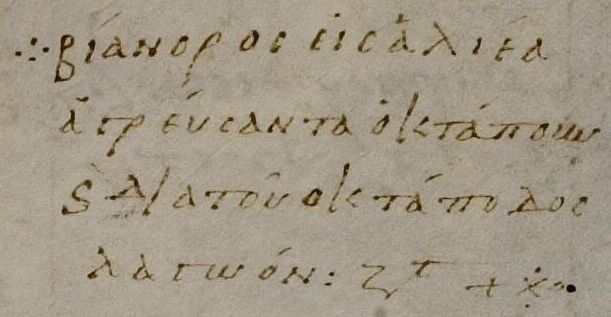 ∴ βιάνορος εἰς ἁλιέα
ἀγρεύσαντα ὀκτάπουν
ϗ διὰ τοῦ ὀκτάποδος
λαγωόν: